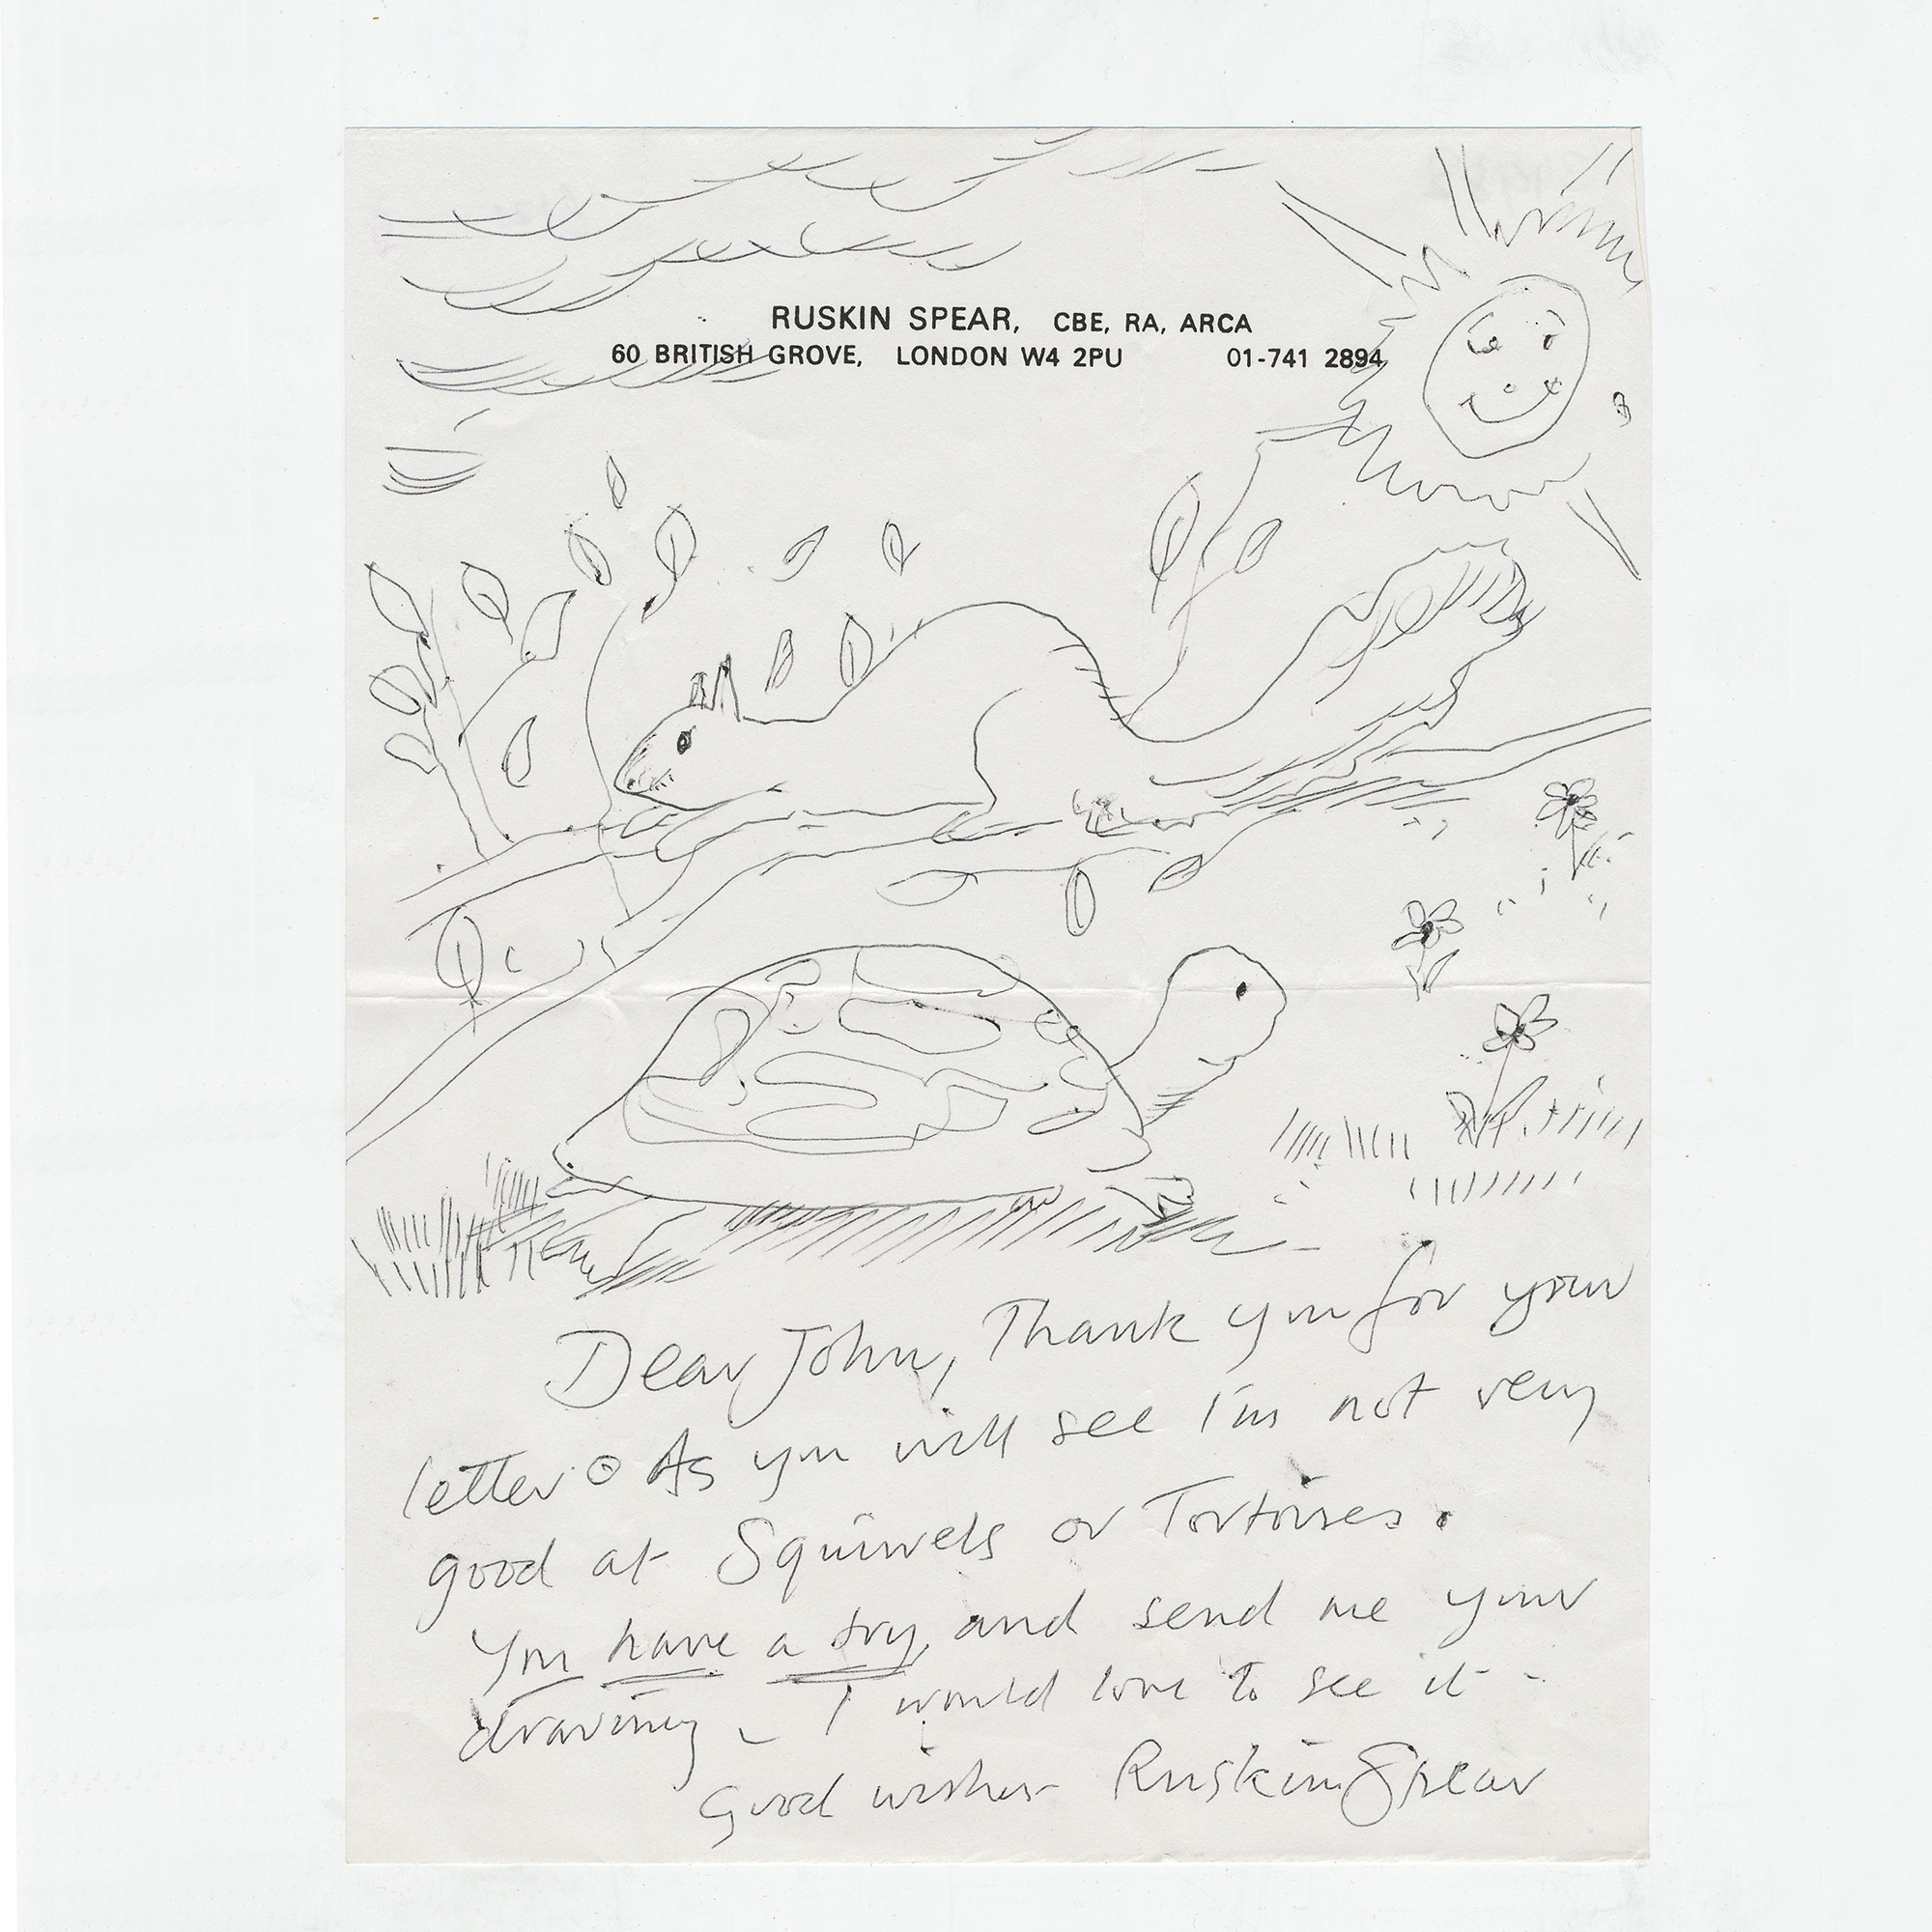 RUSKIN SPEAR, CBE, RA, ARCA
60 BRITISH GROVE, LONDON W4 2PU 01-741 2894
Dear John, Thank you for your
letter. As you will see I'm not very
good at Squirrels or Tortoises.
You have a try, and send me your
drawing – I would love to see it –
Good wishes Ruskin Spear